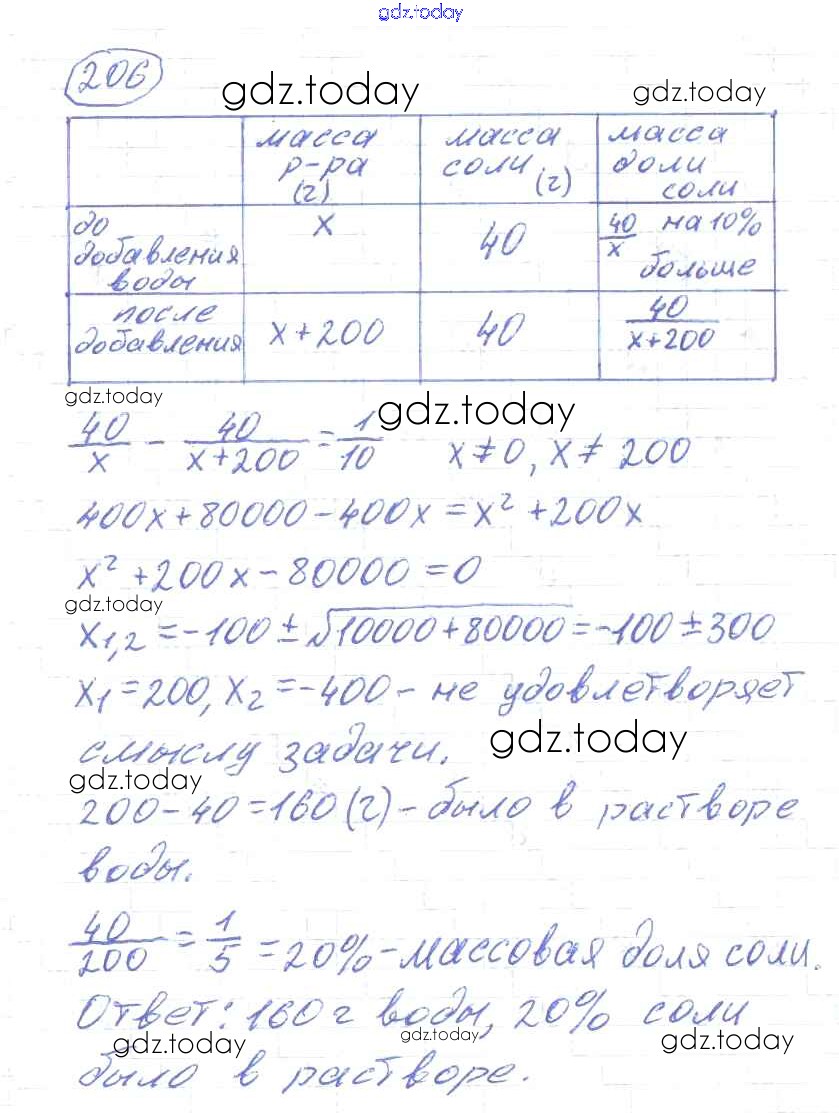 gdz.today
206
gdz.today gdz.today
масса р-ра (г) масса соли (г) масса доли соли
до добавления воды x 40 40/x на 10% больше
после добавления x+200 40 40/(x+200)
gdz.today
gdz.today
40/x - 40/(x+200) = 1/10 x≠0, x≠ 200
400x+80000-400x=x²+200x
x²+200x-80000=0
gdz.today
x1,2=-100±√10000+80000=-100±300
x1=200, x2=-400- не удовлетворяет
смыслу задачи.
gdz.today
gdz.today
200-40=160(г)- было в растворе
воды.
40/200=1/5=20%-массовая доля соли.
Ответ: 160 г воды, 20% соли
gdz.today gdz.today gdz.today
было в растворе.